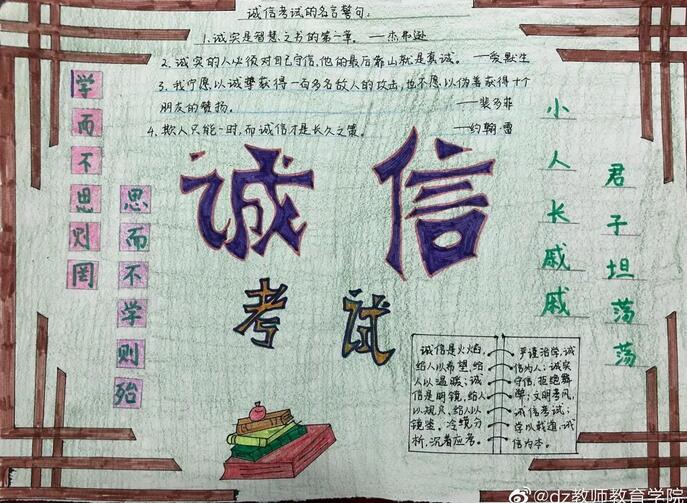 诚信考试的名言警句:
1.诚实是智慧之书的第一章。——杰弗逊
2.诚实的人必须对自己守信,他的最后靠山就是真诚。——爱默生
3.我宁愿以诚挚获得一百多名敌人的攻击,也不愿以伪善获得十个
朋友的赞扬。——裴多菲
4.欺人只能一时,而诚信才是长久之策。——约翰·雷
学而不思则罔
思而不学则殆
诚信
考试
君子坦荡荡
小人长戚戚
诚信是火焰,
给人以希望,给
人以温暖;诚
信是明镜,给人
以规,给人以
镜鉴。冷静分
析,沉着应考。
严谨治学,诚
信为人;诚实
守信,拒绝舞
弊;文明考风,
诚信考试;
学以载道,诚
信为本。
@dz教师教育学院